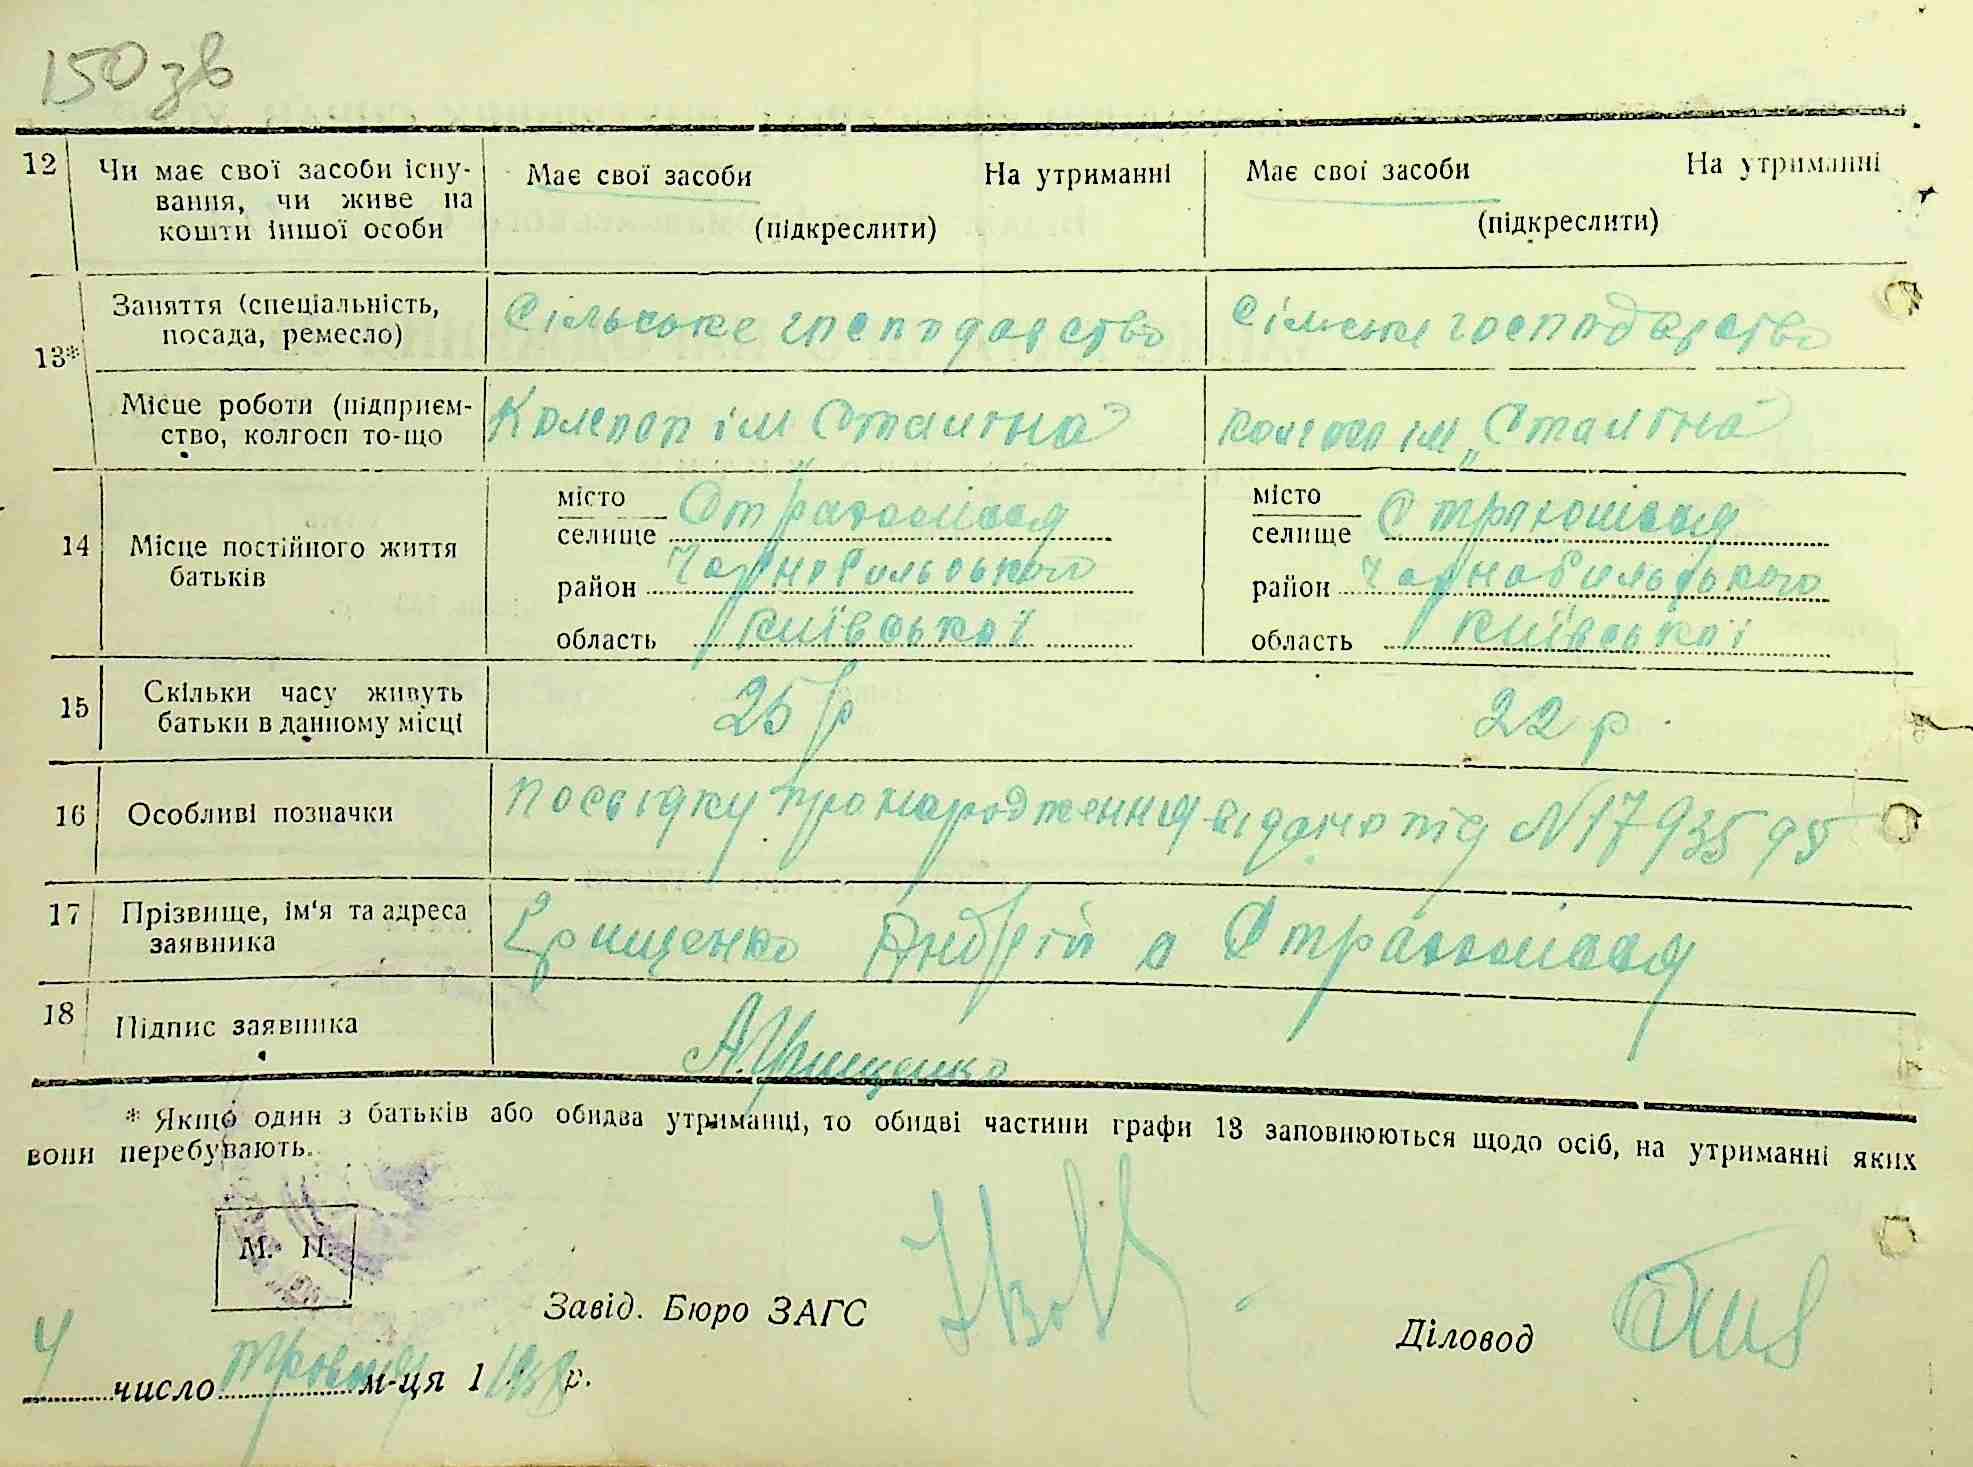 150 зв
12 Чи має свої засоби існу- Має свої засоби На утриманні Має свої засоби На утриманні
вання, чи живе на
кошти іншої особи (підкреслити) (підкреслити)
Заняття (спеціальність, Сільське господарство Сільське господарство
посада, ремесло)
13*
Місце роботи (підприєм- Колгосп ім Сталіна" колгосп ім „Сталіна"
ство, колгосп то-що
місто місто
селище Страхолісся селище Страхолісся
14 Місце постійного життя
батьків район Чорнобильського район Чорнобильського
область Київської область Київської
15 Скільки часу живуть 25 р 22 р.
батьки в данному місці
16 Особливі позначки Посвідку про народження видано під N 1793595
17 Прізвище, ім'я та адреса Грищенко Андрій с Страхолісся
заявника
18 Підпис заявника А.Грищенко
* Якщо один з батьків або обидва утриманці, то обидві частини графи 13 заповнюються щодо осіб, на утриманні яких
вони перебувають.
М. П.
Завід. Бюро ЗАГС
Діловод
4 число травня м-ця 1 1938 р.